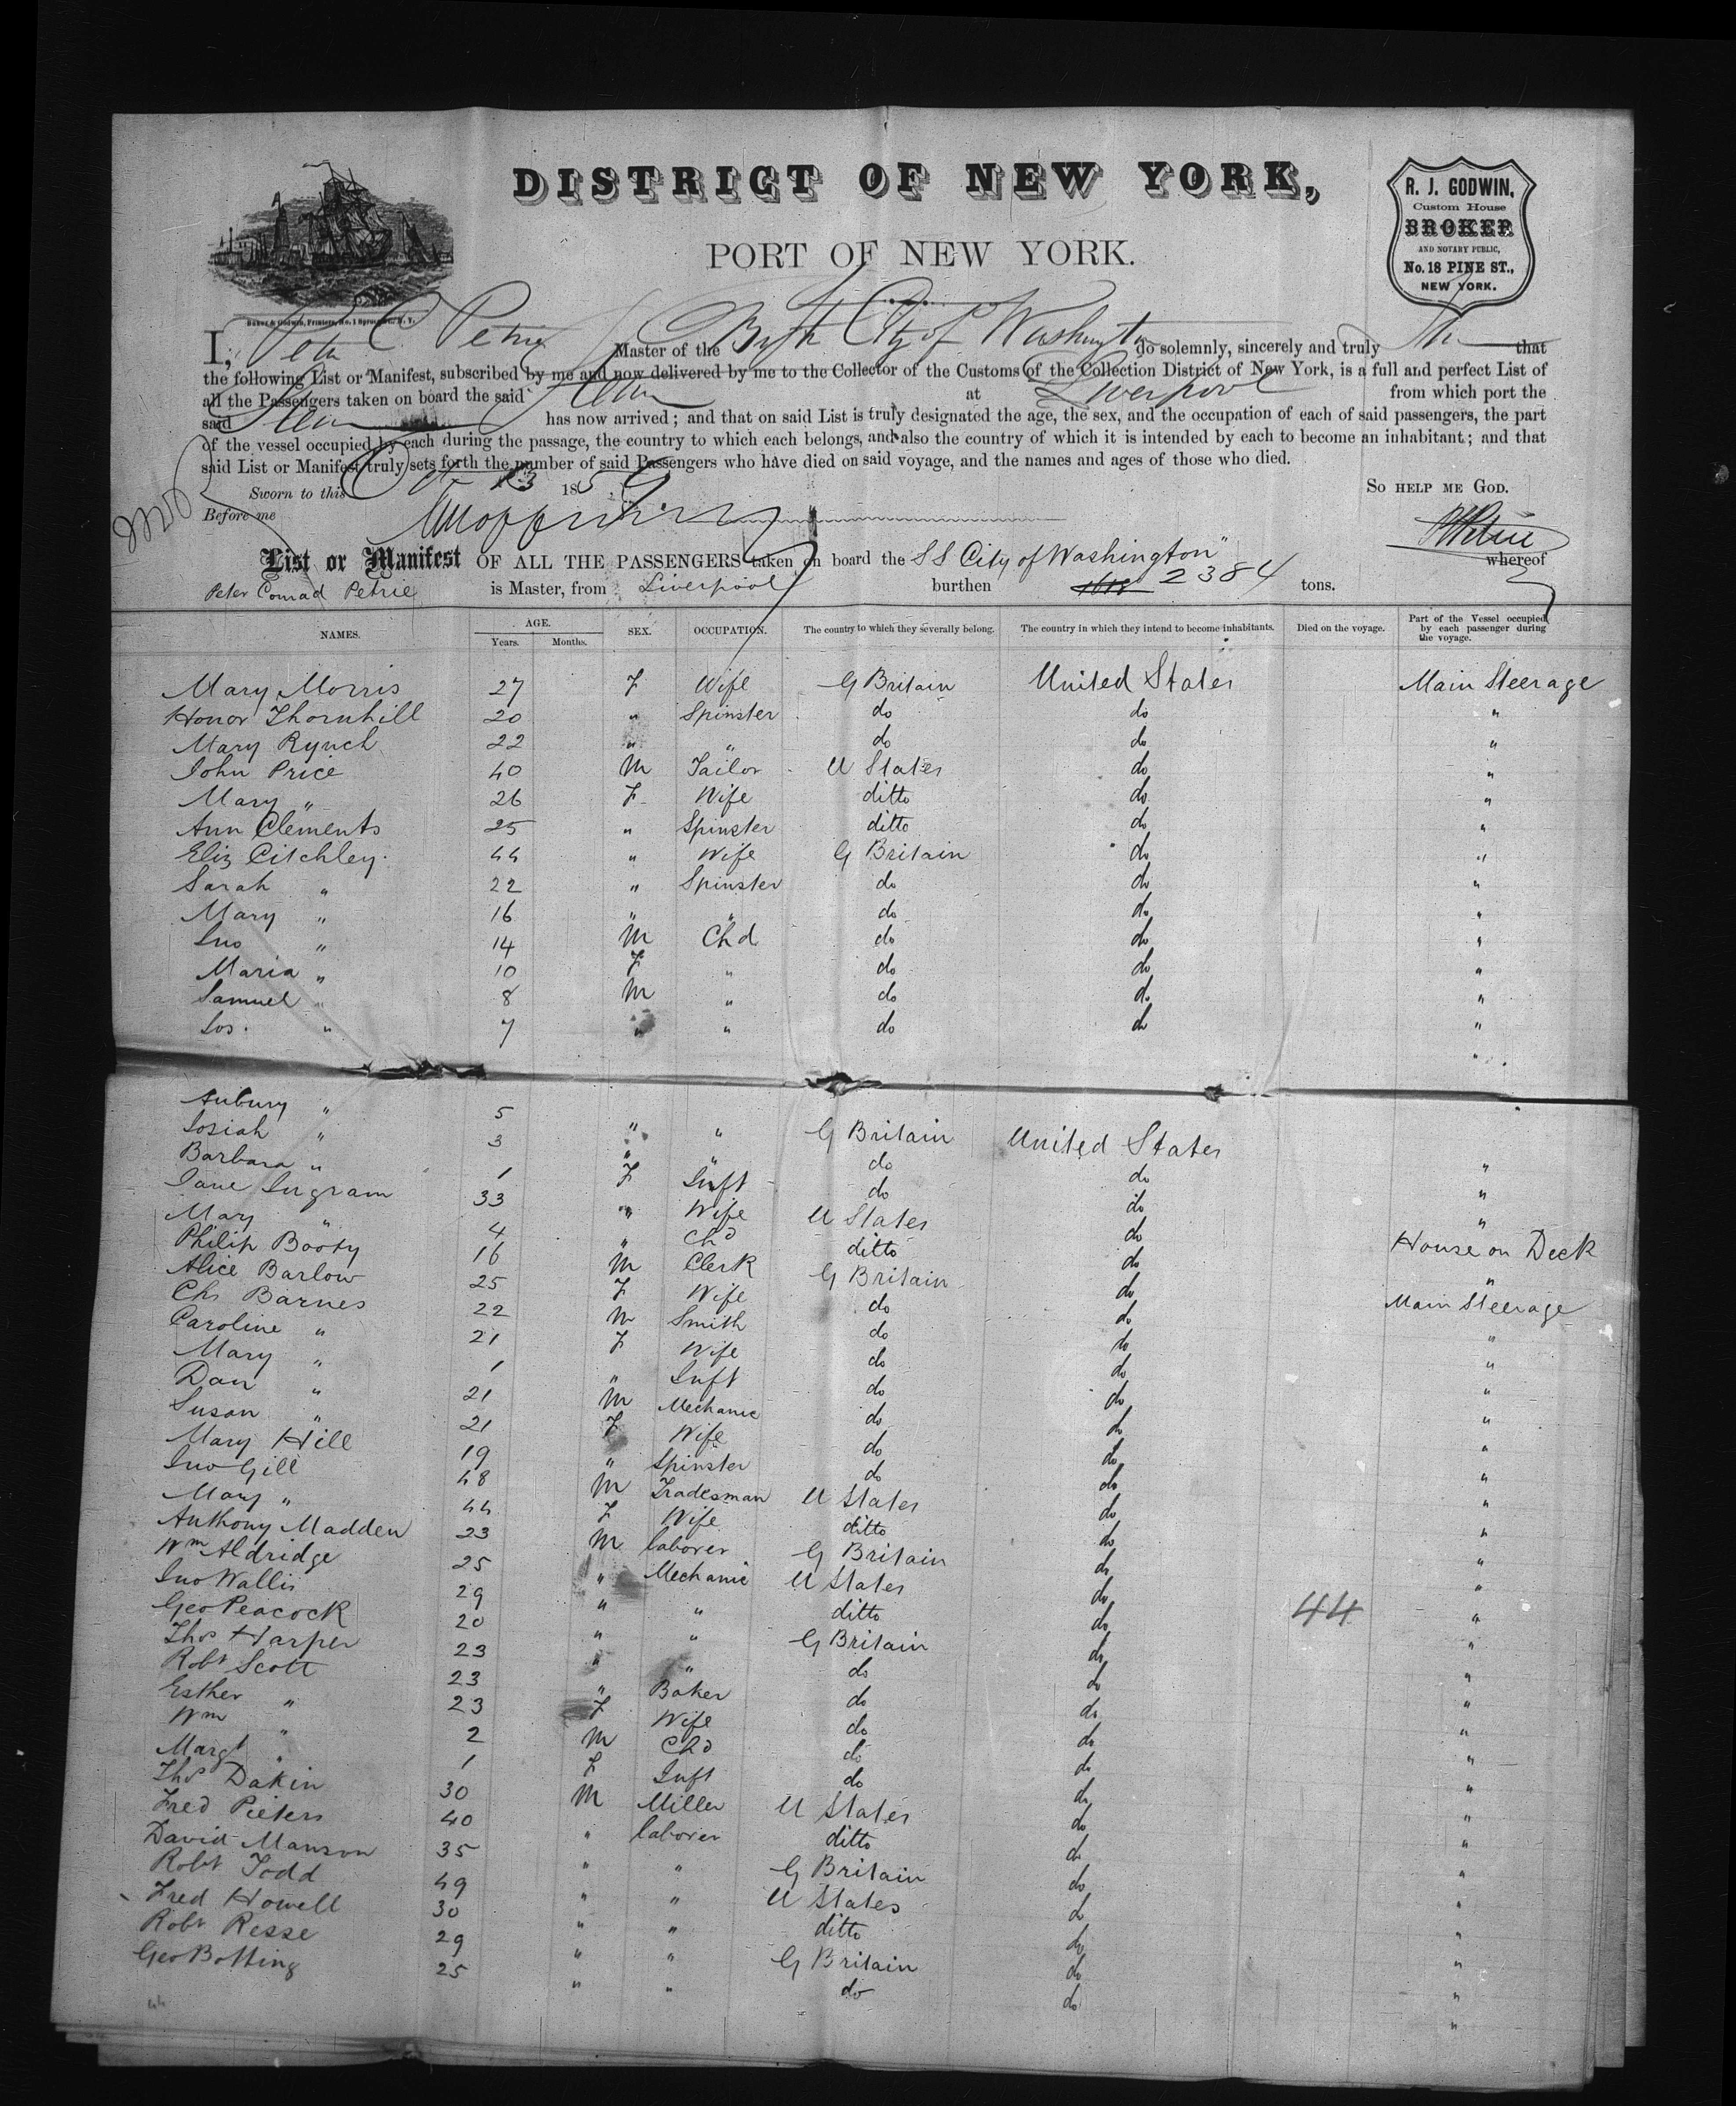 DISTRICT OF NEW YORK,
PORT OF NEW YORK.
R. J. GODWIN,
Custom House
BROKER
AND NOTARY PUBLIC,
No. 18 PINE ST.,
NEW YORK.
Baker & Godwin, Printers, No. 1 Spruce St. N. Y.
I, Peter C Petrie Master of the City of Washington do solemnly, sincerely and truly that
the following List or Manifest, subscribed by me and now delivered by me to the Collector of the Customs of the Collection District of New York, is a full and perfect List of
all the Passengers taken on board the said at Liverpool from which port the
said has now arrived; and that on said List is truly designated the age, the sex, and the occupation of each of said passengers, the part
of the vessel occupied by each during the passage, the country to which each belongs, and also the country of which it is intended by each to become an inhabitant; and that
said List or Manifest truly sets forth the number of said Passengers who have died on said voyage, and the names and ages of those who died.
Sworn to this Oct 13 1859 SO HELP ME GOD.
Before me
List or Manifest OF ALL THE PASSENGERS taken on board the SS City of Washington" whereof
Peter Conrad Petrie is Master, from Liverpool burthen 2384 tons.
NAMES. AGE. Years. Months. SEX. OCCUPATION. The country to which they severally belong. The country in which they intend to become inhabitants. Died on the voyage. Part of the Vessel occupied by each passenger during the voyage.
Mary Morris 27 F Wife G Britain United States Main Steerage
Honor Thornhill 20 " Spinster do do "
Mary Rynch 22 " " do do "
John Price 40 M Tailor U States do "
Mary " 26 F Wife ditto do "
Ann Clements 25 " Spinster ditto do "
Eliz Citchley 44 " Wife G Britain do "
Sarah " 22 " Spinster do do "
Mary " 16 " " do do "
Jno " 14 M Chd do do "
Maria " 10 F " do do "
Samuel " 8 M " do do "
Jos. " 7 " " do do "
Aubury " 5 " " G Britain United States "
Josiah " 3 " " do do "
Barbara " 1 F Inft do do "
Jane Ingram 33 " Wife U States do "
Mary " 4 " Chd ditto do
Philip Booty 16 M Clerk G Britain do House on Deck
Alice Barlow 25 F Wife do do "
Chs Barnes 22 M Smith do do Main Steerage
Caroline " 21 F Wife do do "
Mary " 1 " Inft do do "
Dan " 21 M Mechanic do do "
Susan " 21 F Wife do do "
Mary Hill 19 " Spinster do do "
Jno Gill 48 M Tradesman U States do "
Mary " 44 F Wife ditto do "
Anthony Madden 23 M laborer G Britain do "
Wm Aldridge 25 " Mechanic U States do "
Jno Wallis 29 " " ditto do "
Geo Peacock 20 " " G Britain do 44 "
Thos Harper 23 " " do do "
Robt Scott 23 " Baker do do "
Esther " 23 F Wife do do "
Wm " 2 M Chd do do "
Margt " 1 F Inft do do "
Thos Dakin 30 M Miller U States do "
Fred Pieters 40 " laborer ditto do "
David Manson 35 " " G Britain do "
Robt Todd 49 " " U States do "
Fred Howell 30 " " ditto do "
Robt Resse 29 " " G Britain do "
Geo Botting 25 " " do do "
44